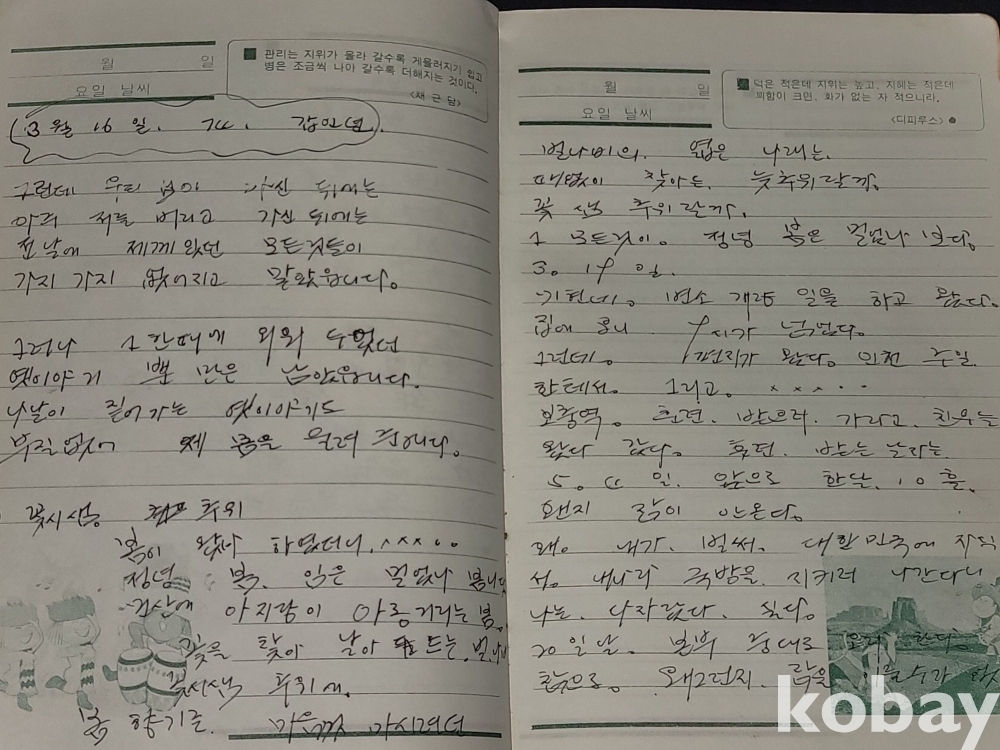 월 일
요일 날씨
관리는 지위가 올라 갈수록 게을러지기 쉽고
병은 조금씩 나아 갈수록 더해지는 것이다.
<채 근 담>
3월 16일.
그런데 우리 님이 가신 뒤에는
아주 저를 버리고 가신 뒤에는
전날에 제께 있던 모든것들이
가지 가지 없어지고 말았읍니다.
그러나 그 한때에 외워 두었던
옛이야기 뿐 만은 남았읍니다.
나날이 짙어가는 옛이야기도
부질없이 제 몸을 울려 줍니다.
꽃시샘 추위
봄이 왔나 하였더니. xxx..
정녕 봄은 멀었나 봅니다
아지랑이 아롱거리는 봄.
꽃을 찾아 날아 드는.
꽃시샘 추위에.
봄 향기는 마음껏 마시려던
월 일
요일 날씨
덕은 적은데 지위는 높고, 지혜는 적은데
꾀함이 크면, 화가 없는 자 적으니라.
<디피루스>
벌나비의. 엷은 나래는.
때없이 찾아든. 늦추위랄까.
꽃샘 추위랄까.
그 모든것이. 정녕 봄은 멀었나 보다.
3. 19 일.
변소 개량 일을 하고 왔다.
집에 오니
그런데. 편지가 왔다. 인천 주일
한테서. 그리고. xxx..
보충역 훈련. 받으러. 가라고. 친우는
왔다 갔다. 훈련. 받는 날자는
5. 일. 앞으로 한달. 10 흘.
왠지 잠이 안온다.
왜. 내가. 벌써. 대한민국에 자식
서. 내나라 국방을. 지키러 나간다니
나는. 다자랐다. 싶다.
20일날. 본부 중대로
왜그런지.
kobay